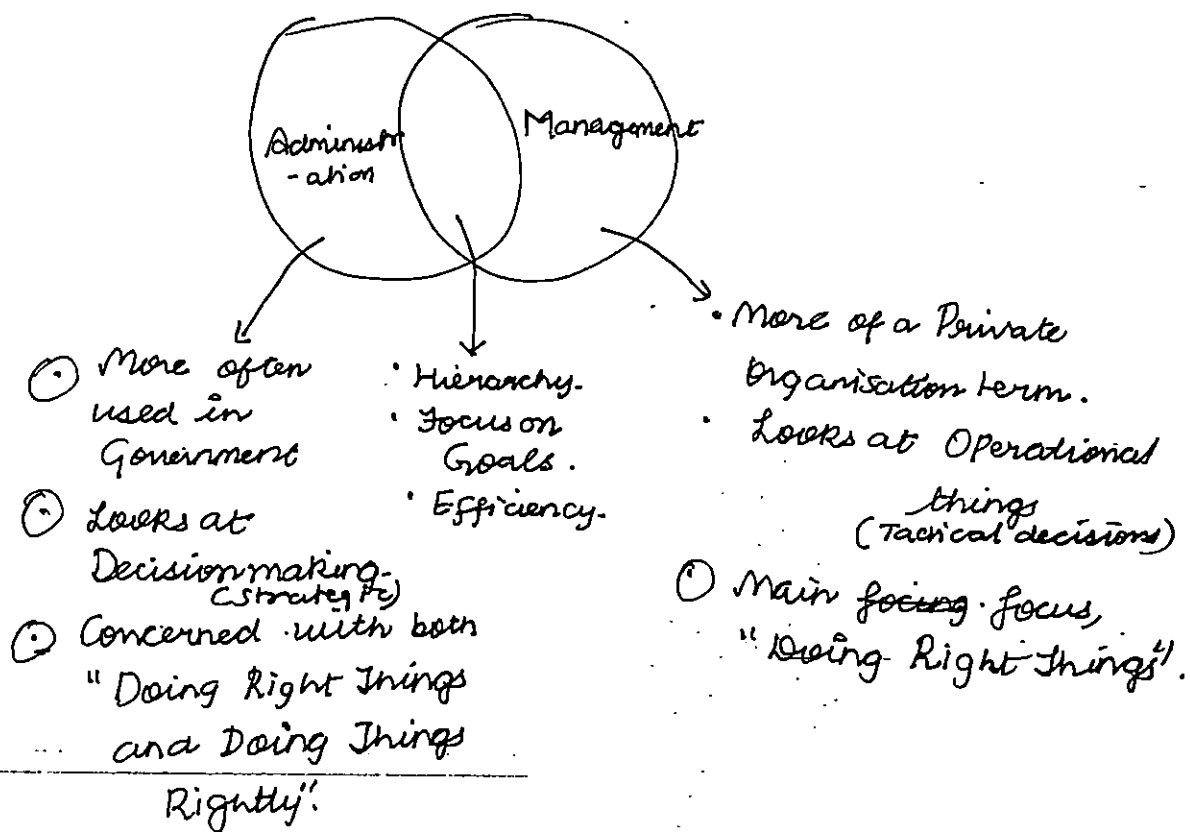 Administr
-ation
Management
More often
used in
Government
Looks at
Decisionmaking.
(Strategic)
Concerned with both
"Doing Right Things
and Doing Things
Rightly".
· Hierarchy.
· Focus on
Goals.
· Efficiency.
· More of a Private
Organisation term.
· Looks at Operational
things
(Tactical decisions)
Main focing. focus,
"Doing Right Things".